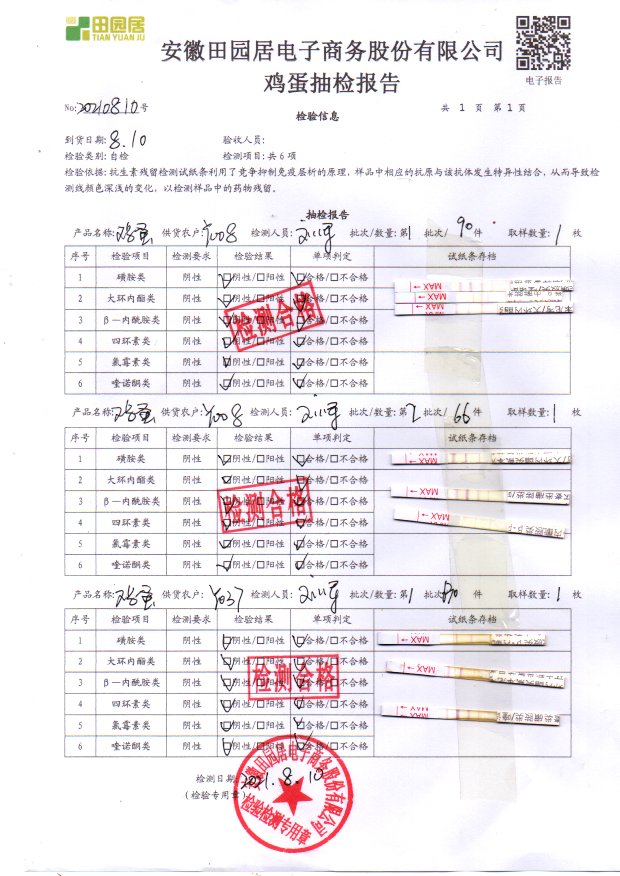 田园居
TIAN YUAN JU
安徽田园居电子商务股份有限公司
鸡蛋抽检报告
电子报告
No:20210810号
共 1 页 第 1 页
检验信息
到货日期: 8.10 验收人员:
检验类别: 自检 检测项目: 共 6 项
检验依据: 抗生素残留检测试纸条利用了竞争抑制免疫层析的原理，样品中相应的抗原与该抗体发生特异性结合，从而导致检
测线颜色深浅的变化，以检测样品中的药物残留。
抽检报告
产品名称: 鸡蛋 供货农户: Y008 检测人员: 批次/数量: 第1 批次/ 90 件 取样数量: 1 枚
序号 检验项目 检测要求 检验结果 单项判定 试纸条存档
1 磺胺类 阴性 ☑阴性/□阳性 ☑合格/□不合格
2 大环内酯类 阴性 ☑阴性/□阳性 ☑合格/□不合格
3 β—内酰胺类 阴性 ☑阴性/□阳性 ☑合格/□不合格
4 四环素类 阴性 ☑阴性/□阳性 ☑合格/□不合格
5 氯霉素类 阴性 ☑阴性/□阳性 ☑合格/□不合格
6 喹诺酮类 阴性 ☑阴性/□阳性 ☑合格/□不合格
检测合格
MAX
MAX
MAX
产品名称: 鸡蛋 供货农户: Y008 检测人员: 批次/数量: 第2 批次/ 66 件 取样数量: 1 枚
序号 检验项目 检测要求 检验结果 单项判定 试纸条存档
1 磺胺类 阴性 ☑阴性/□阳性 ☑合格/□不合格
2 大环内酯类 阴性 ☑阴性/□阳性 ☑合格/□不合格
3 β—内酰胺类 阴性 ☑阴性/□阳性 ☑合格/□不合格
4 四环素类 阴性 ☑阴性/□阳性 ☑合格/□不合格
5 氯霉素类 阴性 ☑阴性/□阳性 ☑合格/□不合格
6 喹诺酮类 阴性 ☑阴性/□阳性 ☑合格/□不合格
检测合格
MAX
MAX
MAX
产品名称: 鸡蛋 供货农户: Y037 检测人员: 批次/数量: 第1 批次/ 件 取样数量: 1 枚
序号 检验项目 检测要求 检验结果 单项判定 试纸条存档
1 磺胺类 阴性 ☑阴性/□阳性 ☑合格/□不合格
2 大环内酯类 阴性 ☑阴性/□阳性 ☑合格/□不合格
3 β—内酰胺类 阴性 ☑阴性/□阳性 ☑合格/□不合格
4 四环素类 阴性 ☑阴性/□阳性 ☑合格/□不合格
5 氯霉素类 阴性 ☑阴性/□阳性 ☑合格/□不合格
6 喹诺酮类 阴性 ☑阴性/□阳性 ☑合格/□不合格
检测合格
MAX
MAX
MAX
检测日期: 2021.8.10
(检验专用章)
安徽田园居电子商务股份有限公司
检验检测专用章